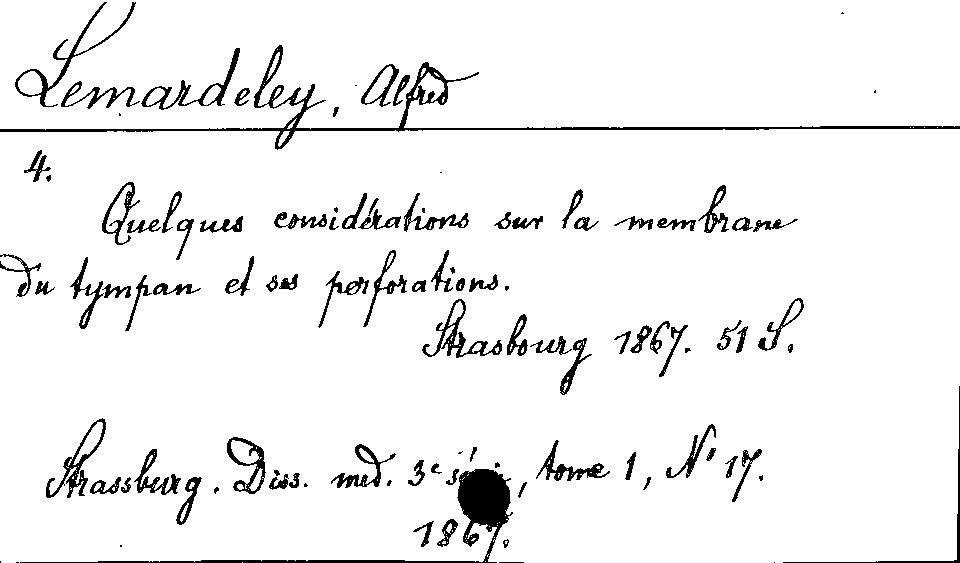 Lemardeley, Alfred
4.
Quelques considérations sur la membrane
du tympan et ses perforations.
Strasbourg 1867. 51 S.
Strassburg. Diss. med. 3e série, tome 1, No 17.
1867.